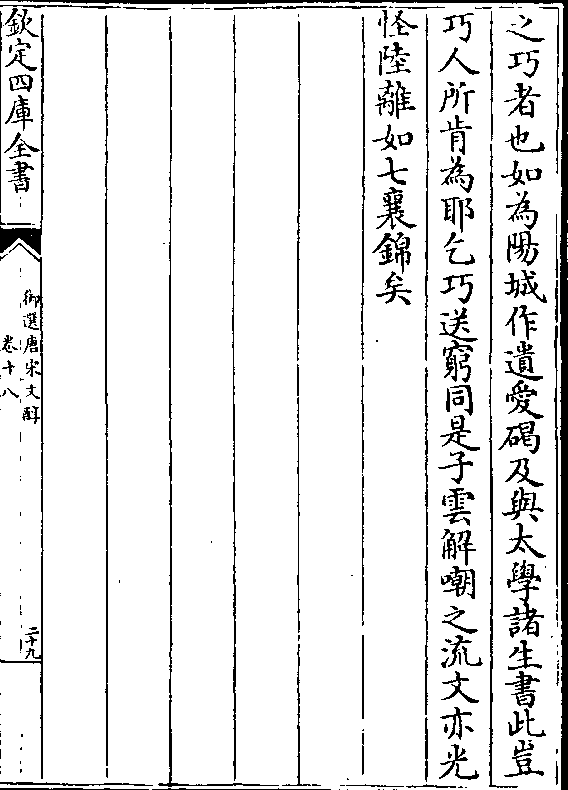 之巧者也如為陽城作遺愛碣及與太學諸生書此豈
巧人所肯為耶乞巧送窮同是子雲解嘲之流文亦光
怪陸離如七襄錦矣
欽定四庫全書
御選唐宋文醇
卷十八
二十九